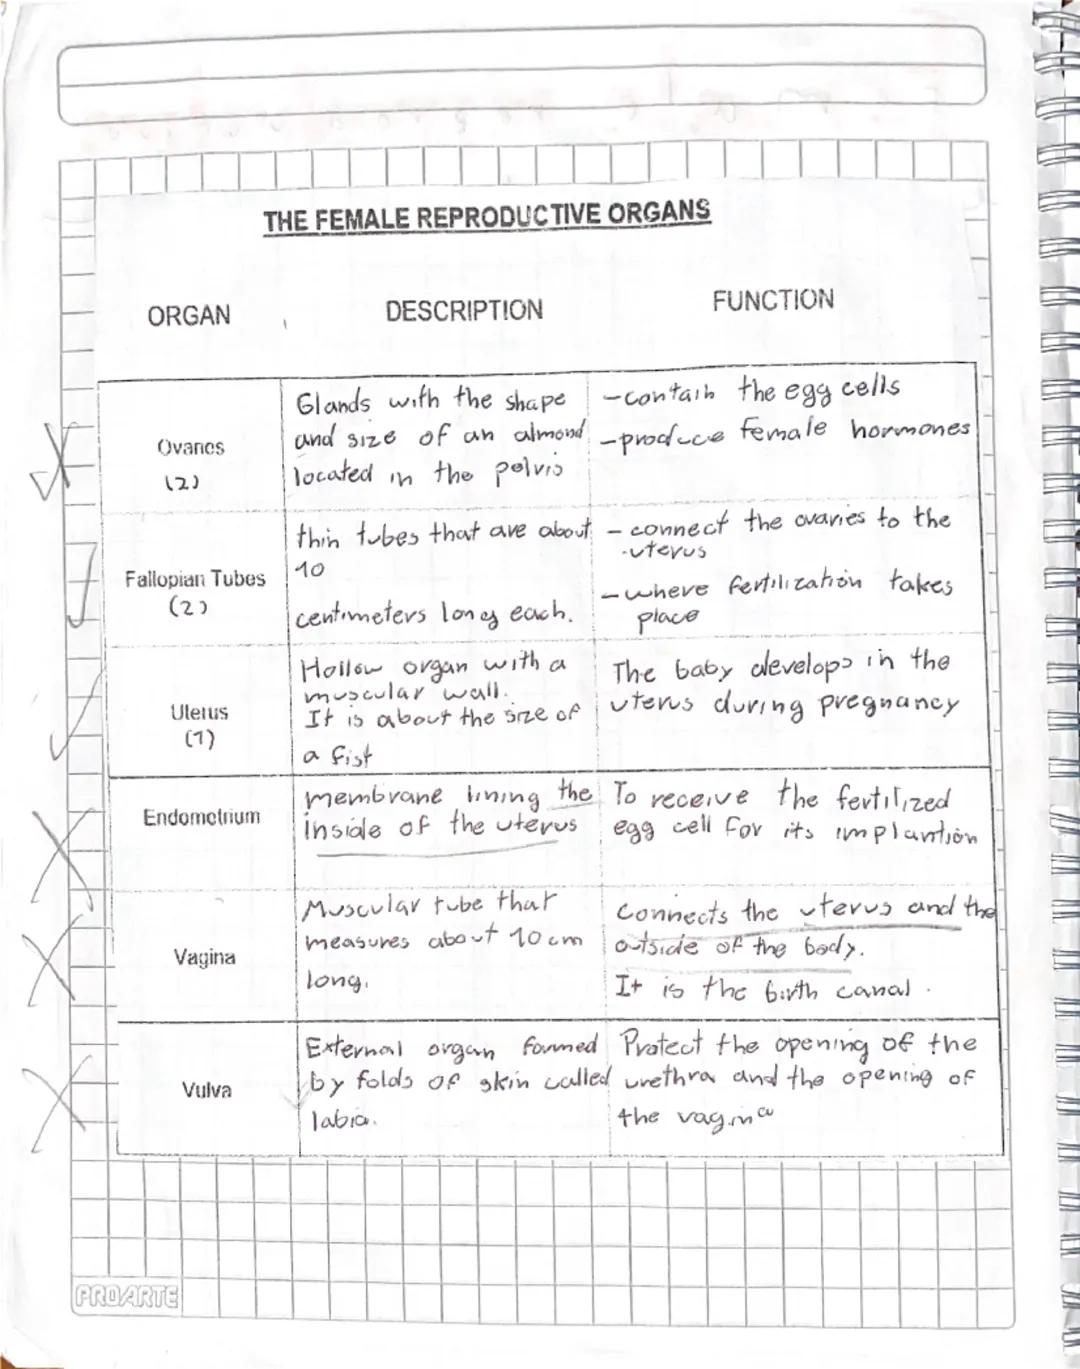 THE FEMALE REPRODUCTIVE ORGANS
ORGAN
DESCRIPTION
FUNCTION
Ovaries
(2)
Glands with the shape
and size of an almond
located in the pelvis
-contain the egg cells
-produce female hormones
Fallopian Tubes
(2)
thin tubes that are about
10
centimeters long each.
- connect the ovaries to the
uterus
-where fertilization takes
place
Uterus
(1)
Hollow organ with a
muscular wall.
It is about the size of
a fist
The baby develops in the
uterus during pregnancy
Endometrium
membrane lining the
inside of the uterus
To receive the fertilized
egg cell for its implantion
Vagina
Muscular tube that
measures about 10 cm
long.
Connects the uterus and the
outside of the body.
It is the birth canal.
Vulva
External organ formed
by folds of skin called
labia.
Protect the opening of the
urethra and the opening of
the vagina
PROARTE